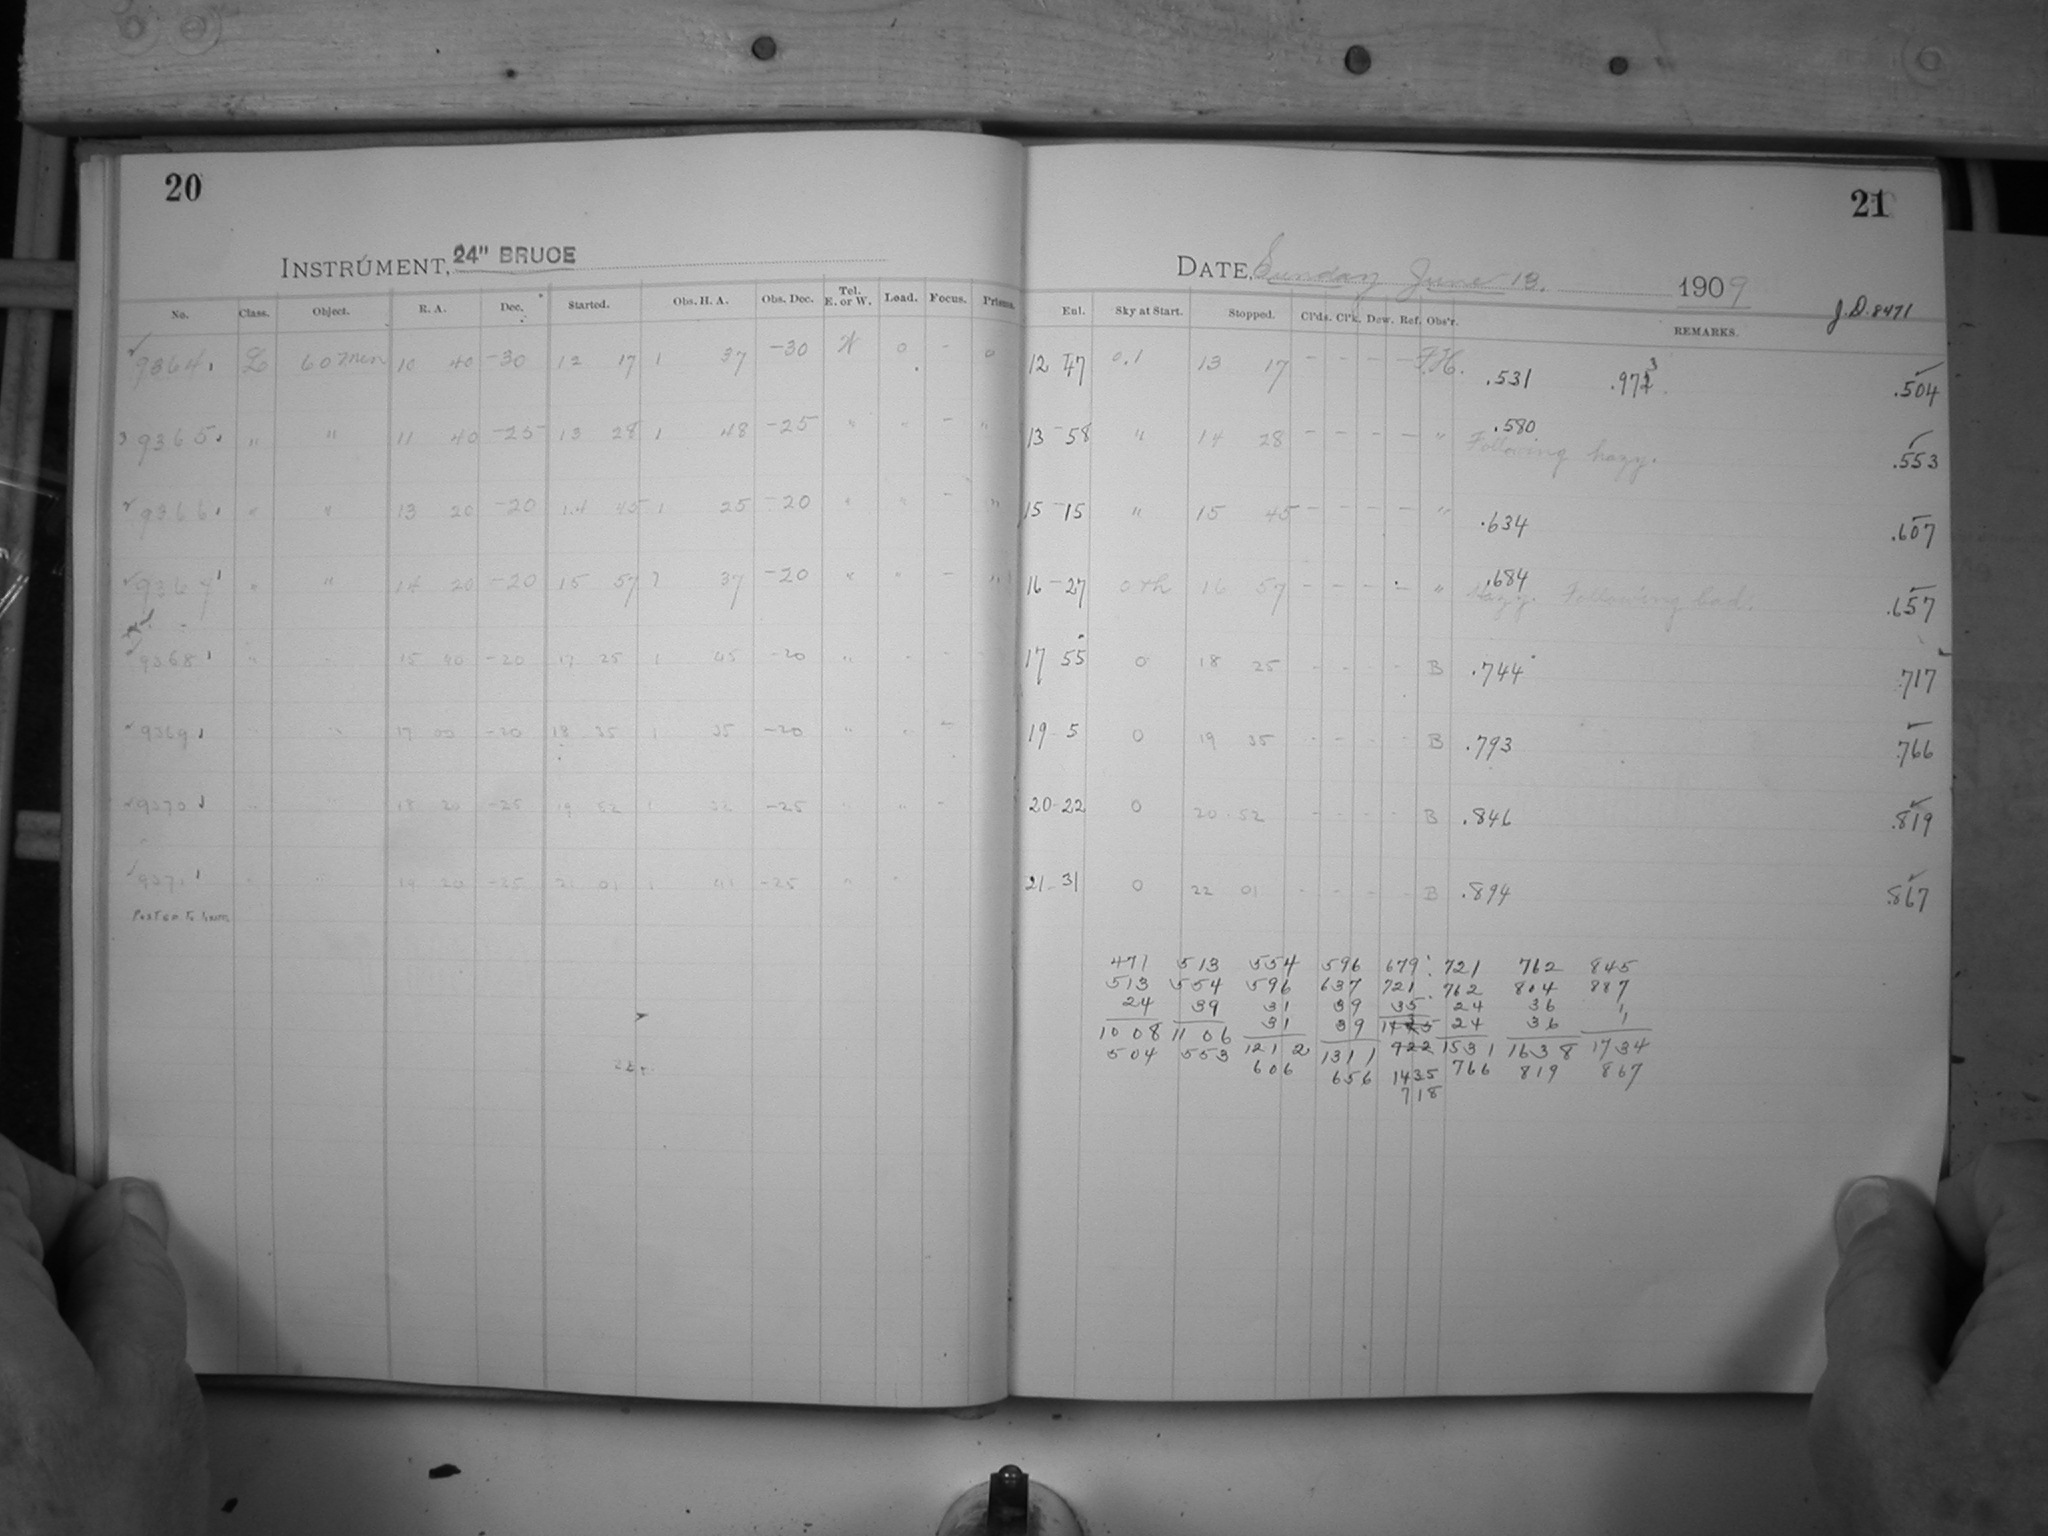 20
INSTRUMENT, 24" BRUCE
No. Class. Object. R. A. Dec. Started. Obs. H. A. Obs. Dec. Tel. E. or W. Load. Focus. Prisms.
9364 L 60 min 10 40 -30 12 17 1 37 -30 W 0 - 0
9365 " " 11 40 -25 13 28 1 48 -25 " " - "
9366 " " 13 20 -20 14 45 1 25 -20 " " - "
9367 " " 14 20 -20 15 57 1 37 -20 " " - "
9368 " 15 40 -20 17 25 1 45 -20 " - -
9369 17 00 -20 18 35 1 35 -20 " " -
9370 18 20 -25 19 52 1 32 -25 " " -
9371 19 20 -25 21 01 1 41 -25 " "
21
DATE, Sunday June 13. 1909
J.D. 8471
Eul. Sky at Start. Stopped. Cl'ds. Cl'k. Dew. Ref. Obs'r. REMARKS.
12 47 0.1 13 17 - - - - F.H. .531 .973 .504
13-58 " 14 28 - - - - " .580 Following hazy. .553
15-15 " 15 45 - - - - " .634 .607
16-27 0 th 16 57 - - - - " .684 Hazy. Following bad. .657
17 55 0 18 25 - - - - B .744 .717
19-5 0 19 35 - - - - B .793 .766
20-22 0 20 52 - - - - B .846 .819
21-31 0 22 01 - - - - B .894 .867
471 513 554 596 679 721 762 845
513 554 596 637 721 762 804 887
24 39 31 39 35 24 36 1
31 39 24 36 1
1008 1106 1212 1311 1531 1638 1734
504 553 606 656 922 766 819 867
1435
718